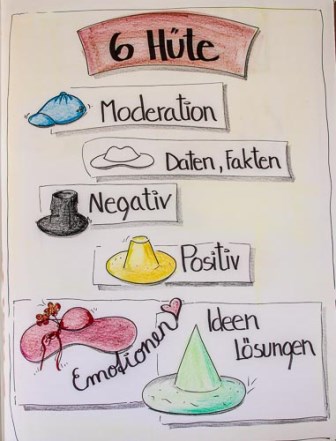 6 Hüte
Moderation
Daten, Fakten
Negativ
Positiv
Emotionen
Ideen
Lösungen